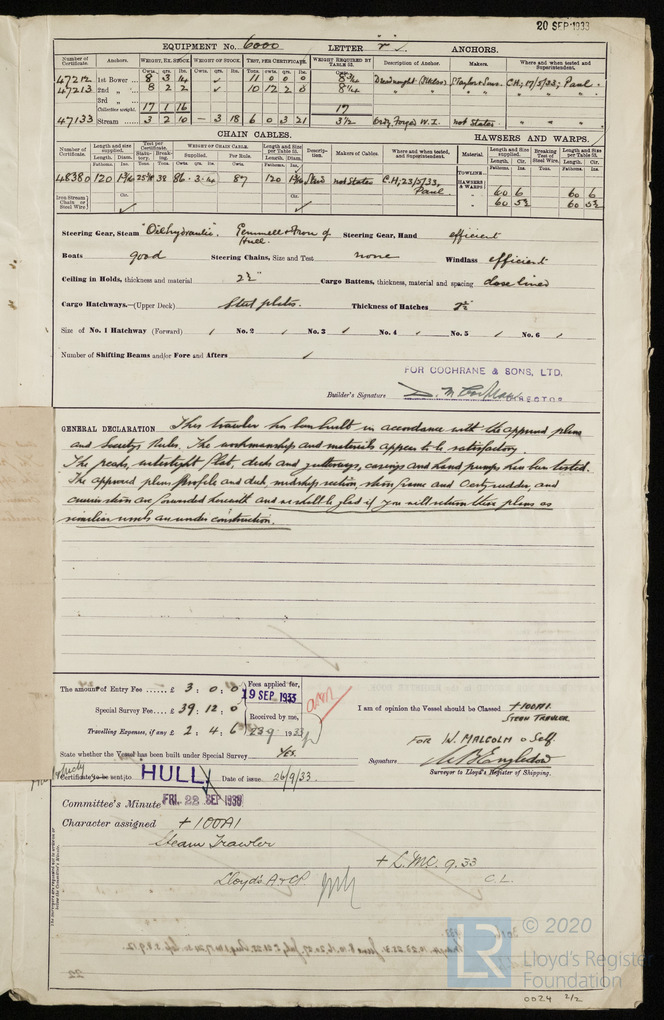 20 SEP 1933
EQUIPMENT No. 6000 LETTER "r" ANCHORS.
Number of Certificate. Anchors. WEIGHT, EX. STOCK. WEIGHT OF STOCK. TEST, PER CERTIFICATE. WEIGHT REQUIRED BY TABLE 53. Description of Anchor. Makers. Where and when tested and Superintendent.
Cwts. qrs. lbs. Cwts. qrs. lbs. Tons. cwts. qrs. lbs. Cwts.
47212 1st Bower 8 3 14 ✓ 11 0 0 0 8¾ Dreadnought S Taylor & Sons C.H; 17/5/33; Paul.
47213 2nd " 8 2 2 ✓ 10 12 2 0 8¼ " " " " " "
3rd "
Collective weight. 17 1 16 17
47133 Stream 3 2 10 — 3 18 6 0 3 21 3½ Ordy Forged W.I. not States " " "
CHAIN CABLES. HAWSERS AND WARPS.
Number of Certificate. Length and size supplied. Test per Certificate. WEIGHT OF CHAIN CABLE. Length and size per Table 53. Description. Makers of Cables. Where and when tested, and Superintendent. Material. Length and size supplied. Breaking Test of Steel Wire. Length and Size per Table 53.
Length. Diam. Statutory. Breaking. Supplied. Per Rule. Length. Diam. Length. Cir. Length. Cir.
Fathoms. Ins. Tons. Tons. Cwts. qrs. lbs. Cwts. Fathoms. Ins. TOWLINE Fathoms. Ins. Tons. Fathoms. Ins.
48380 120 86 . 3 . 4 87 120 Stud not States C.H; 23/5/33, Paul HAWSERS & WARPS 60 6 60 6
Iron Stream Chain or Steel Wire Cir. ✓ Cir. ✓ " 60 5½ 60 5½
Steering Gear, Steam "Oilhydraulic". Pemmell & Iron of Hull. Steering Gear, Hand efficient
Boats good Steering Chains, Size and Test none Windlass efficient
Ceiling in Holds, thickness and material 2½" Cargo Battens, thickness, material and spacing close lined
Cargo Hatchways.—(Upper Deck) Steel plates. Thickness of Hatches 2½"
Size of No. 1 Hatchway (Forward) ✓ No. 2 ✓ No. 3 ✓ No. 4 ✓ No. 5 ✓ No. 6 ✓
Number of Shifting Beams and/or Fore and Afters ✓
FOR COCHRANE & SONS, LTD.
Builder's Signature D. M Cochrane DIRECTOR
GENERAL DECLARATION This trawler has been built in accordance with the approved plans
and Society's Rules. The workmanship and materials appear to be satisfactory.
The peaks, watertight flat, deck and gutterways, casings and hand pumps has been tested.
The approved plans Profile and deck, midship section, stern frame and Oertz rudder, and
cruiser stern are forwarded herewith and we shall be glad if you will return these plans as
similar vessels are under construction.
The amount of Entry Fee ...... £ 3 : 0 : 0
Fees applied for, 19 SEP 1933
Special Survey Fee .... £ 39 : 12 : 0
Received by me,
Travelling Expenses, if any £ 2 : 4 : 6
23 9 1933
I am of opinion the Vessel should be Classed +100A1. STEAM TRAWLER
FOR W. MALCOLM & Self
State whether the Vessel has been built under Special Survey Yes.
Signature W B Engledow
Surveyor to Lloyd's Register of Shipping.
Certificate to be sent to HULL Date of issue 26/9/33
Committee's Minute FRI. 22 SEP 1933
Character assigned +100A1
Steam Trawler
+ L.M.C. 9.33
Lloyd's A & CP. C.L.
© 2020
LR Lloyd's Register Foundation
0024 2/2